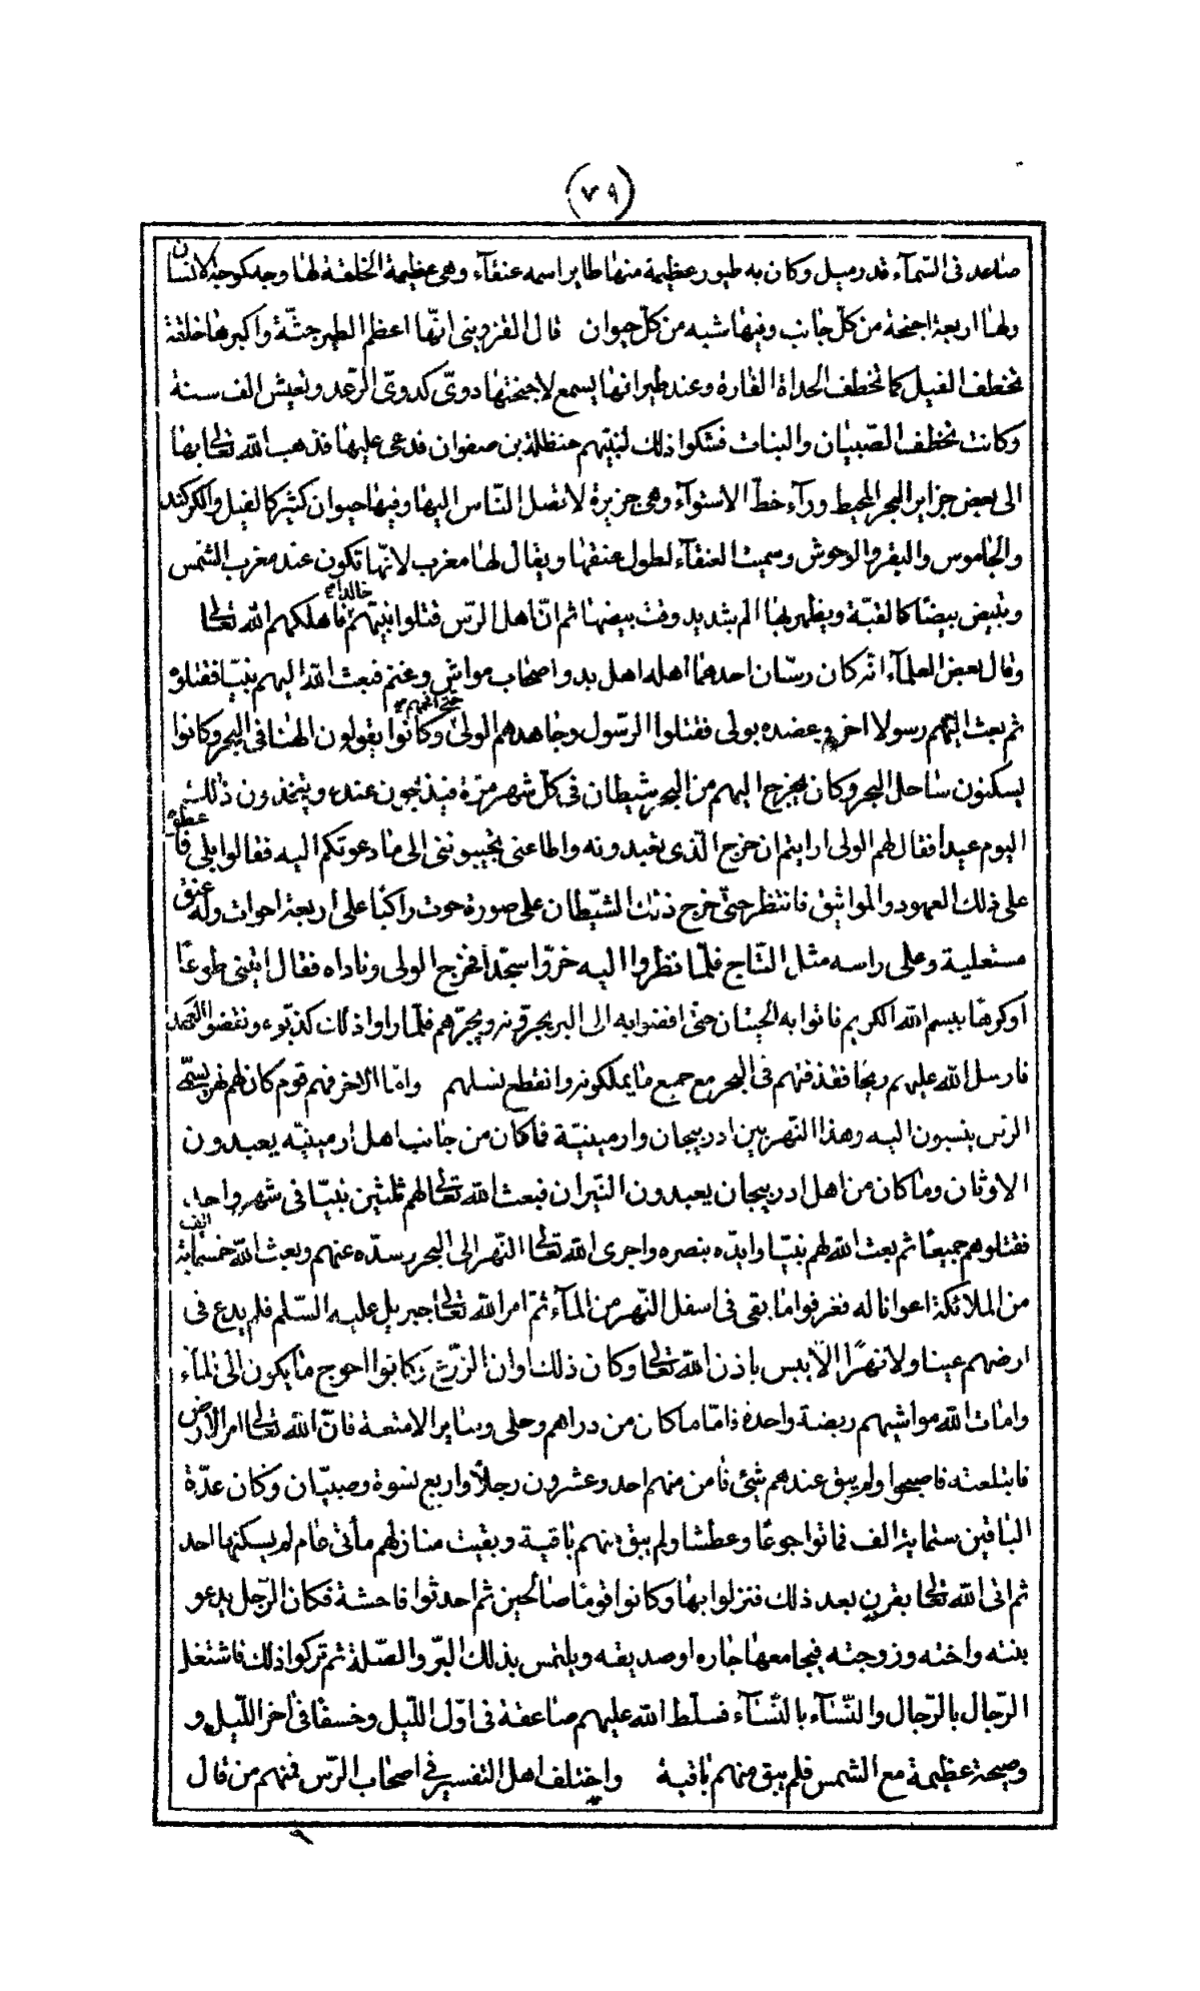 (٧٩)
صاعد فى السّمآء قدر ميل وكان به طيور عظيمة منها طاير اسمه عنقآء وهى عظيمة الخلقة لها وجه كوجه الانسان
ولها اربعة اجنحة من كلّ جانب وفيها شبه من كلّ حيوان قال القزوينى انّها اعظم الطير جثّة واكبرها خلقة
تخطف الفيل كما تخطف الحداة الفارة وعند طيرانها يسمع لاجنحتها دوىّ كدوىّ الرّعد وتعيش الف سنة
وكانت تخطف الصّبيان والبنات فشكوا ذلك لنبيّهم حنظلة بن صفوان فدعى عليها فذهب الله تعالى بها
الى بعض جزاير البحر المحيط ورآء خطّ الاستوآء وهى جزيرة لا تصل النّاس اليها وفيها حيوان كثير كالفيل والكركند
والجاموس والبقر والوحوش وسميت العنقآء لطول عنقها ويقال لها مغرب لانّها تكون عند مغرب الشمس
وتبيض بيضًا كالقبّة ويظهر بها الم شديد وقت بيضها ثم انّ اهل الرّس قتلوا نبيّهم خالدا فاهلكهم الله تعالى
وقال بعض العلمآء انّه كان رسّان احدهما اهله اهل بدو واصحاب مواشى وغنم فبعث الله اليهم نبيّا فقتلوه
ثم بعث اليهم رسولا اخر وعضده بولى فقتلوا الرّسول وجاهدهم الولى حتى افحمهم وكانوا يقولون الهنا فى البحر وكانوا
يسكنون ساحل البحر وكان يخرج اليهم من البحر شيطان فى كلّ شهر مرّة فيذبحون عنده ويتخذون ذلك
اليوم عيدا فقال لهم الولى ارايتم ان خرج الّذى تعبدونه واطاعنى تجيبوننى الى ما دعوتكم اليه فقالوا بلى فاعطوه
على ذلك العهود والمواثيق فانتظر حتىّ خرج ذلك الشّيطان على صورة حوت راكبا على اربعة احوات وله عنق
مستعلية وعلى راسه مثل التّاج فلمّا نظروا اليه خرّوا سجّدا فخرج الولى وناداه فقال ايتنى طوعًا
اوكرها ببسم الله الكريم فاتوا به الحيتان حتى افضوا به الى البر يجرّونه ويجرّهم فلمّا راوا ذلك كذبّوه ونقضوا العهد
فارسل الله عليهم ريحا فقذفتهم فى البحر مع جميع ما يملكونه وانقطع نسلهم وامّا الاخر فهم قوم كان لهم نهر يسمّى
الرّس ينسبون اليه وهذا النّهر بين ادربيجان وارمينيّة فاكان من جانب اهل ارمينيّه يعبدون
الاوثان وما كان من اهل ادربيجان يعبدون النّيران فبعث الله تعالى لهم ثلثين نبيّا فى شهر واحد
فقتلوهم جميعًا ثم بعث الله لهم نبيّا وايدّه بنصره واجرى الله تعالى النّهر الى البحر وسدّه عنهم وبعث الله خمسماية الف
من الملائكة اعوانا له فغرفوا ما بقى فى اسفل النّهر من المآء ثمّ امر الله تعالى جبريل عليه السّلم فلم يدع فى
ارضهم عينا ولا نهرًا الاّ يبس باذن الله تعالى وكان ذلك اوان الزّرع وكانوا احوج ما يكون الى المآء
وامات الله مواشيهم ربضة واحدة فامّا ما كان من دراهم وحلى وساير الامتعة فانّ الله تعالى امر الارض
فابتلعته فاصبحوا ولم يبق عندهم شئ فامن منهم احد وعشرون رجلاً واربع نسوة وصبيّان وكان عدّة
الباقين ستماية الف فماتوا جوعًا وعطشا ولم يبق منهم باقية وبقيت منازلهم مأتى عام لم يسكنها احد
ثم اتى الله تعالى بقرن بعد ذلك فنزلوا بها وكانوا قومًا صالحين ثم احدثوا فاحشة فكان الرّجل يدعو
بنته واخته وزوجته فيجامعها جاره او صديقه ويلتمس بذلك البرّ والصّلة ثم تركوا ذلك فاشتغل
الرّجال بالرّجال والنّسآء بالنّسآء فسلّط الله عليهم صاعقة فى اوّل اللّيل وخسفًا فى اخر اللّيل و
وصيحة عظيمة مع الشمس فلم يبق منهم باقية واختلف اهل التفسير فى اصحاب الرّس فمنهم من قال
٩